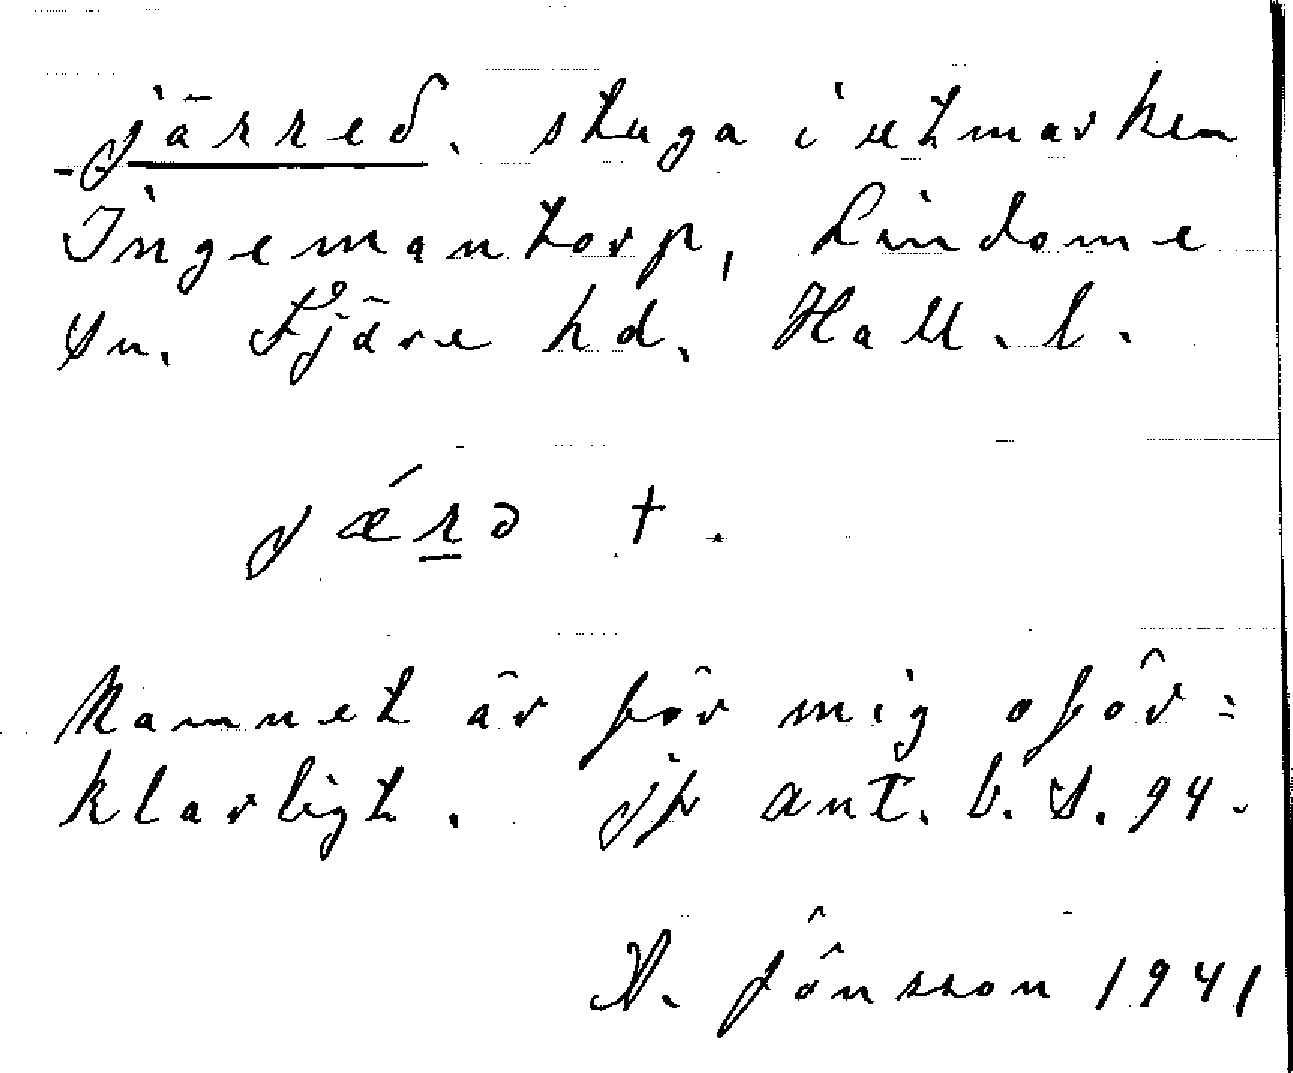 järred. stuga i utmarken
Ingemantorp, Lindome
Sn. Fjäre hd. Hall. l.
jǽrd †.
Namnet är för mig oför=
klarligt. Jfr ant. b. S. 94.
N. Jönsson 1941